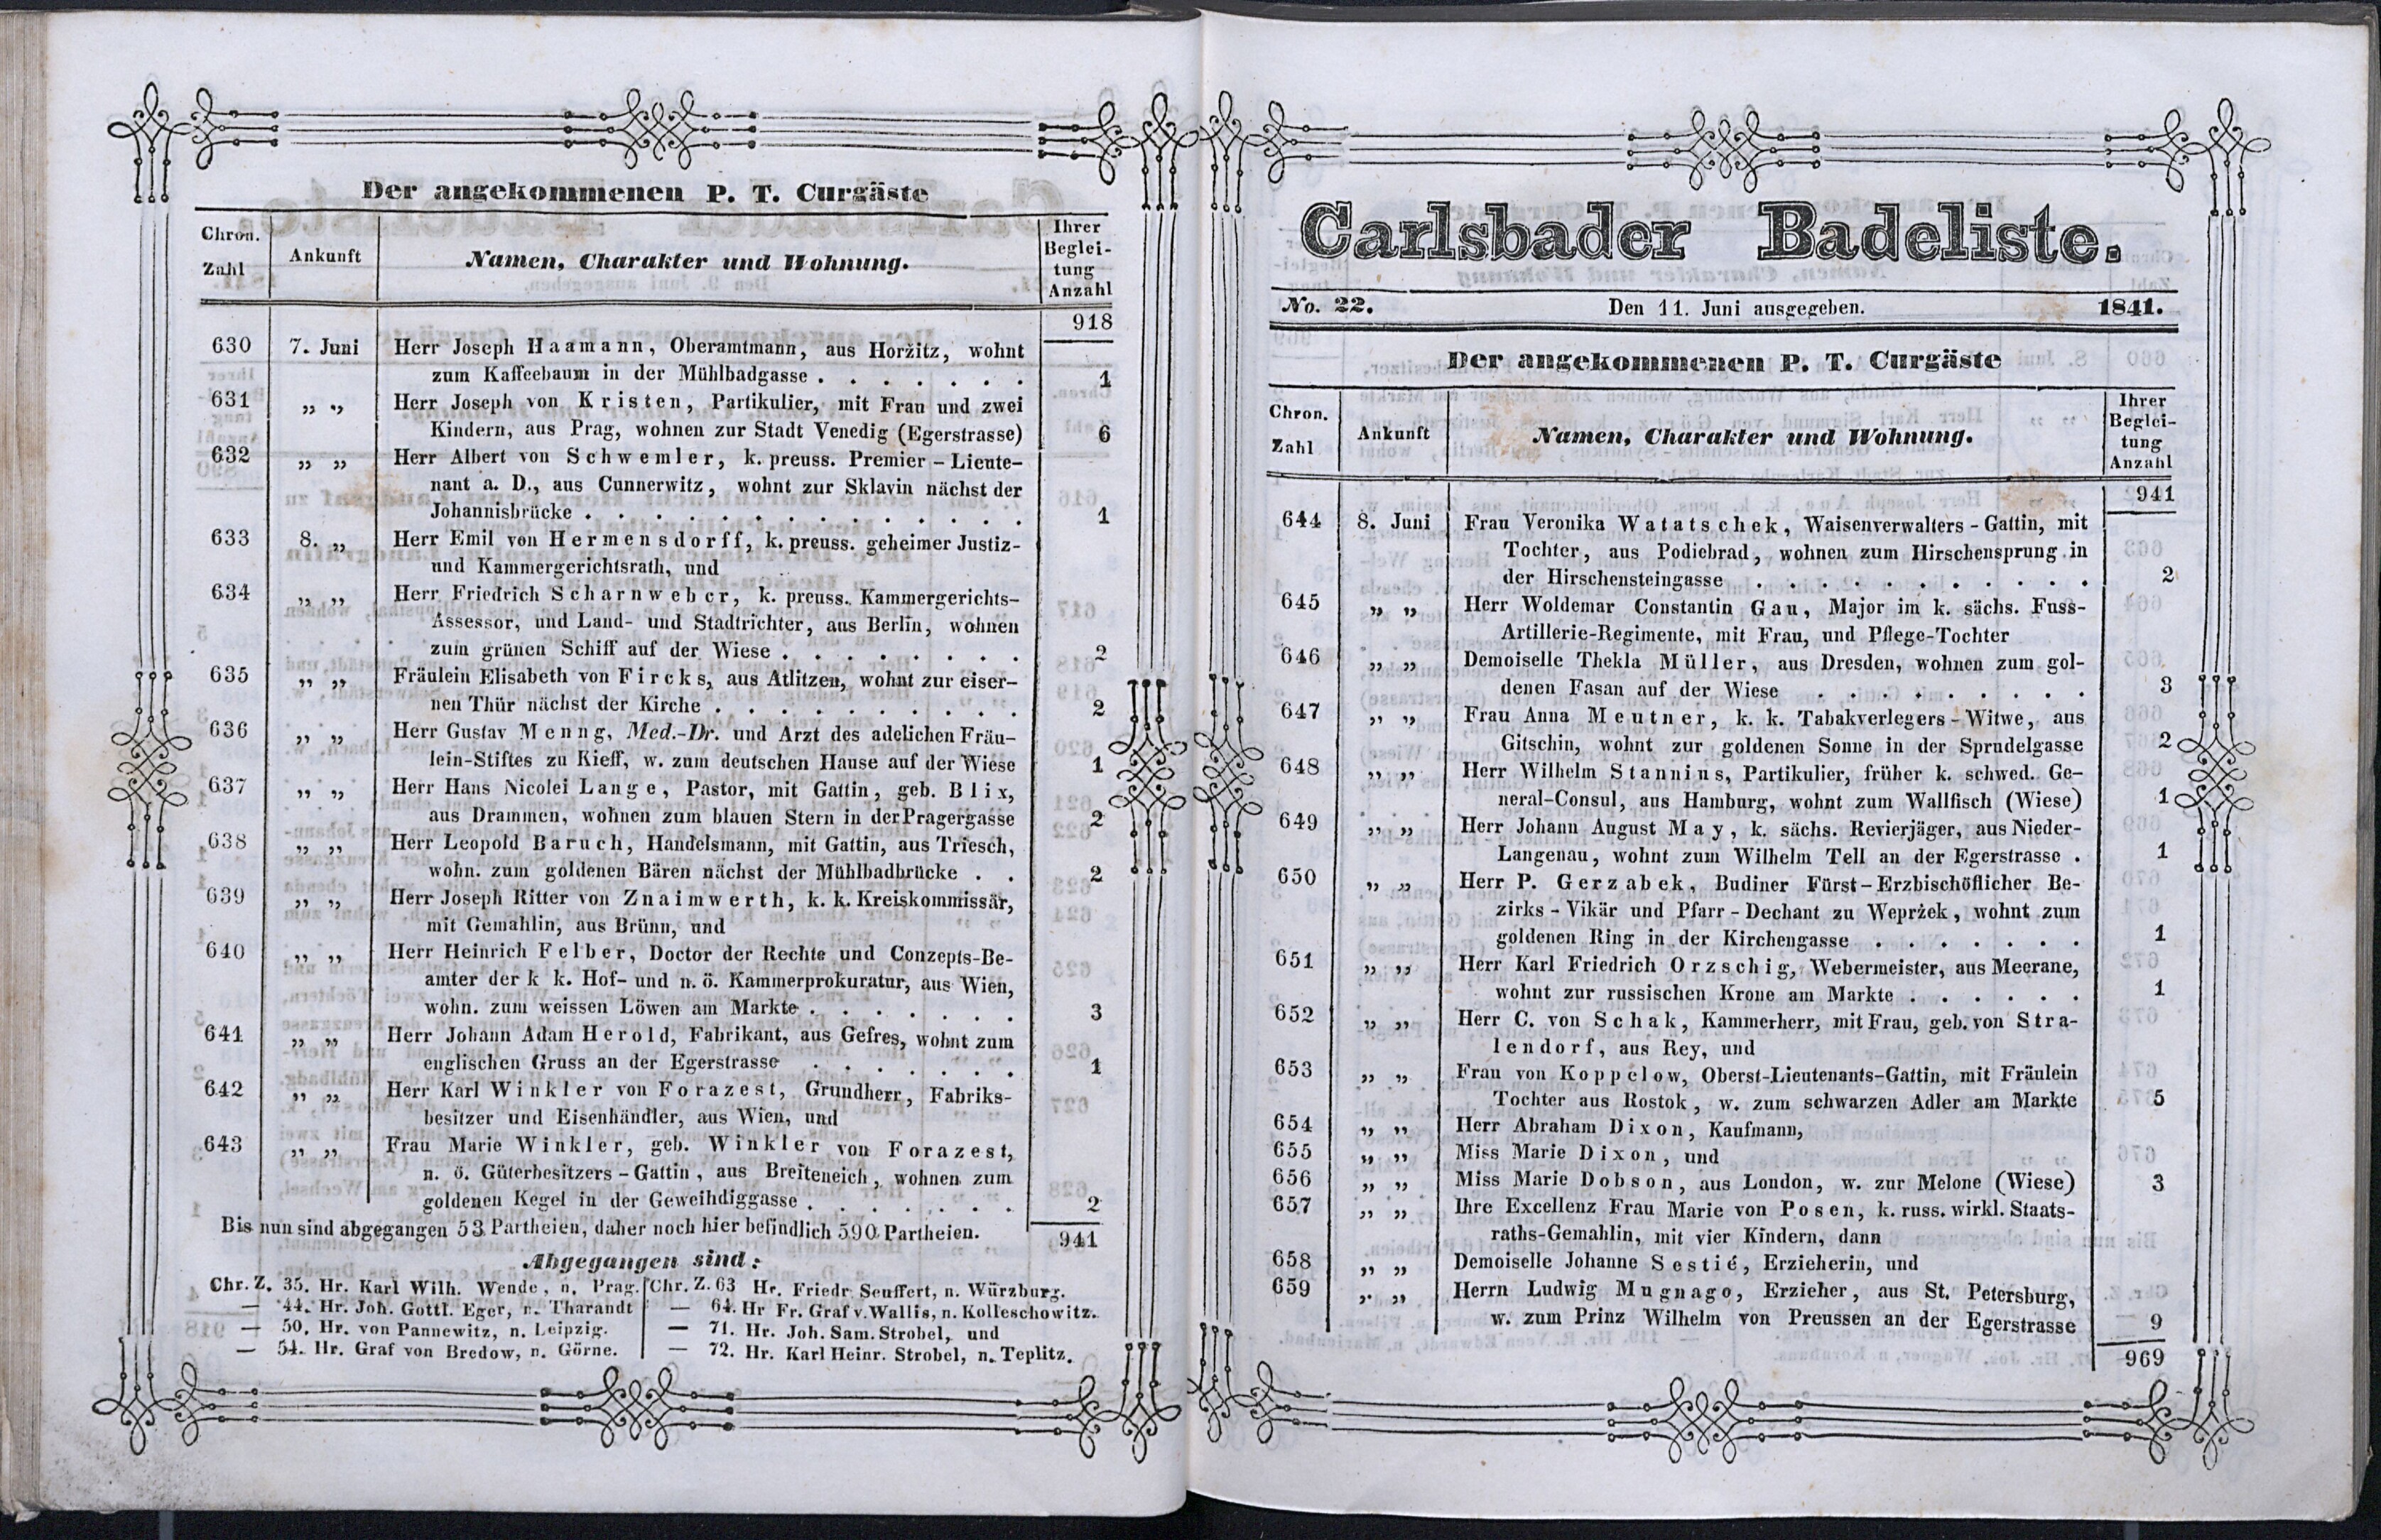 Der angekommenen P. T. Curgäste
Chron. Zahl | Ankunft | Namen, Charakter und Wohnung. | Ihrer Beglei- tung Anzahl
918
630 7. Juni Herr Joseph Haamann, Oberamtmann, aus Horžitz, wohnt
zum Kaffeebaum in der Mühlbadgasse . . . . . . . 1
631 „ „ Herr Joseph von Kristen, Partikulier, mit Frau und zwei
Kindern, aus Prag, wohnen zur Stadt Venedig (Egerstrasse) 6
632 „ „ Herr Albert von Schwemler, k. preuss. Premier-Lieute-
nant a. D., aus Cunnerwitz, wohnt zur Sklavin nächst der
Johannisbrücke . . . . . . . . . . . . . 1
633 8. „ Herr Emil von Hermensdorff, k. preuss. geheimer Justiz-
und Kammergerichtsrath, und
634 „ „ Herr Friedrich Scharnweber, k. preuss. Kammergerichts-
Assessor, und Land- und Stadtrichter, aus Berlin, wohnen
zum grünen Schiff auf der Wiese . . . . . . . . 2
635 „ „ Fräulein Elisabeth von Fircks, aus Atlitzen, wohnt zur eiser-
nen Thür nächst der Kirche . . . . . . . . . . 2
636 „ „ Herr Gustav Menng, Med.-Dr. und Arzt des adelichen Fräu-
lein-Stiftes zu Kieff, w. zum deutschen Hause auf der Wiese 1
637 „ „ Herr Hans Nicolei Lange, Pastor, mit Gattin, geb. Blix,
aus Drammen, wohnen zum blauen Stern in der Pragergasse 2
638 „ „ Herr Leopold Baruch, Handelsmann, mit Gattin, aus Triesch,
wohn. zum goldenen Bären nächst der Mühlbadbrücke . . 2
639 „ „ Herr Joseph Ritter von Znaimwerth, k. k. Kreiskommissär,
mit Gemahlin, aus Brünn, und
640 „ „ Herr Heinrich Felber, Doctor der Rechte und Conzepts-Be-
amter der k k. Hof- und n. ö. Kammerprokuratur, aus Wien,
wohn. zum weissen Löwen am Markte . . . . . . . 3
641 „ „ Herr Johann Adam Herold, Fabrikant, aus Gefres, wohnt zum
englischen Gruss an der Egerstrasse . . . . . . . 1
642 „ „ Herr Karl Winkler von Forazest, Grundherr, Fabriks-
besitzer und Eisenhändler, aus Wien, und
643 „ „ Frau Marie Winkler, geb. Winkler von Forazest,
n. ö. Güterbesitzers-Gattin, aus Breiteneich, wohnen zum
goldenen Kegel in der Geweihdiggasse . . . . . . . 2
Bis nun sind abgegangen 53 Partheien, daher noch hier befindlich 590 Partheien. 941
Abgegangen sind:
Chr. Z. 35. Hr. Karl Wilh. Wende, n. Prag.
— 44. Hr. Joh. Gottl. Eger, n. Tharandt
— 50. Hr. von Pannewitz, n. Leipzig.
— 54. Hr. Graf von Bredow, n. Görne.
Chr. Z. 63 Hr. Friedr. Seuffert, n. Würzburg.
— 64. Hr Fr. Graf v. Wallis, n. Kolleschowitz.
— 71. Hr. Joh. Sam. Strobel, und
— 72. Hr. Karl Heinr. Strobel, n. Teplitz.
Carlsbader Badeliste.
No. 22. Den 11. Juni ausgegeben. 1841.
Der angekommenen P. T. Curgäste
Chron. Zahl | Ankunft | Namen, Charakter und Wohnung. | Ihrer Beglei- tung Anzahl
941
644 8. Juni Frau Veronika Watatschek, Waisenverwalters-Gattin, mit
Tochter, aus Podiebrad, wohnen zum Hirschensprung in
der Hirschensteingasse . . . . . . . . . . . 2
645 „ „ Herr Woldemar Constantin Gau, Major im k. sächs. Fuss-
Artillerie-Regimente, mit Frau, und Pflege-Tochter
646 „ „ Demoiselle Thekla Müller, aus Dresden, wohnen zum gol-
denen Fasan auf der Wiese . . . . . . . . . 3
647 „ „ Frau Anna Meutner, k. k. Tabakverlegers-Witwe, aus
Gitschin, wohnt zur goldenen Sonne in der Sprudelgasse 2
648 „ „ Herr Wilhelm Stannius, Partikulier, früher k. schwed. Ge-
neral-Consul, aus Hamburg, wohnt zum Wallfisch (Wiese) 1
649 „ „ Herr Johann August May, k. sächs. Revierjäger, aus Nieder-
Langenau, wohnt zum Wilhelm Tell an der Egerstrasse . 1
650 „ „ Herr P. Gerzabek, Budiner Fürst-Erzbischöflicher Be-
zirks-Vikär und Pfarr-Dechant zu Weprżek, wohnt zum
goldenen Ring in der Kirchengasse . . . . . . . 1
651 „ „ Herr Karl Friedrich Orzschig, Webermeister, aus Meerane,
wohnt zur russischen Krone am Markte . . . . . . 1
652 „ „ Herr C. von Schak, Kammerherr, mit Frau, geb. von Stra-
lendorf, aus Rey, und
653 „ „ Frau von Koppelow, Oberst-Lieutenants-Gattin, mit Fräulein
Tochter aus Rostok, w. zum schwarzen Adler am Markte 5
654 „ „ Herr Abraham Dixon, Kaufmann,
655 „ „ Miss Marie Dixon, und
656 „ „ Miss Marie Dobson, aus London, w. zur Melone (Wiese) 3
657 „ „ Ihre Excellenz Frau Marie von Posen, k. russ. wirkl. Staats-
raths-Gemahlin, mit vier Kindern, dann
658 „ „ Demoiselle Johanne Sestié, Erzieherin, und
659 „ „ Herrn Ludwig Mugnago, Erzieher, aus St. Petersburg,
w. zum Prinz Wilhelm von Preussen an der Egerstrasse 9
969